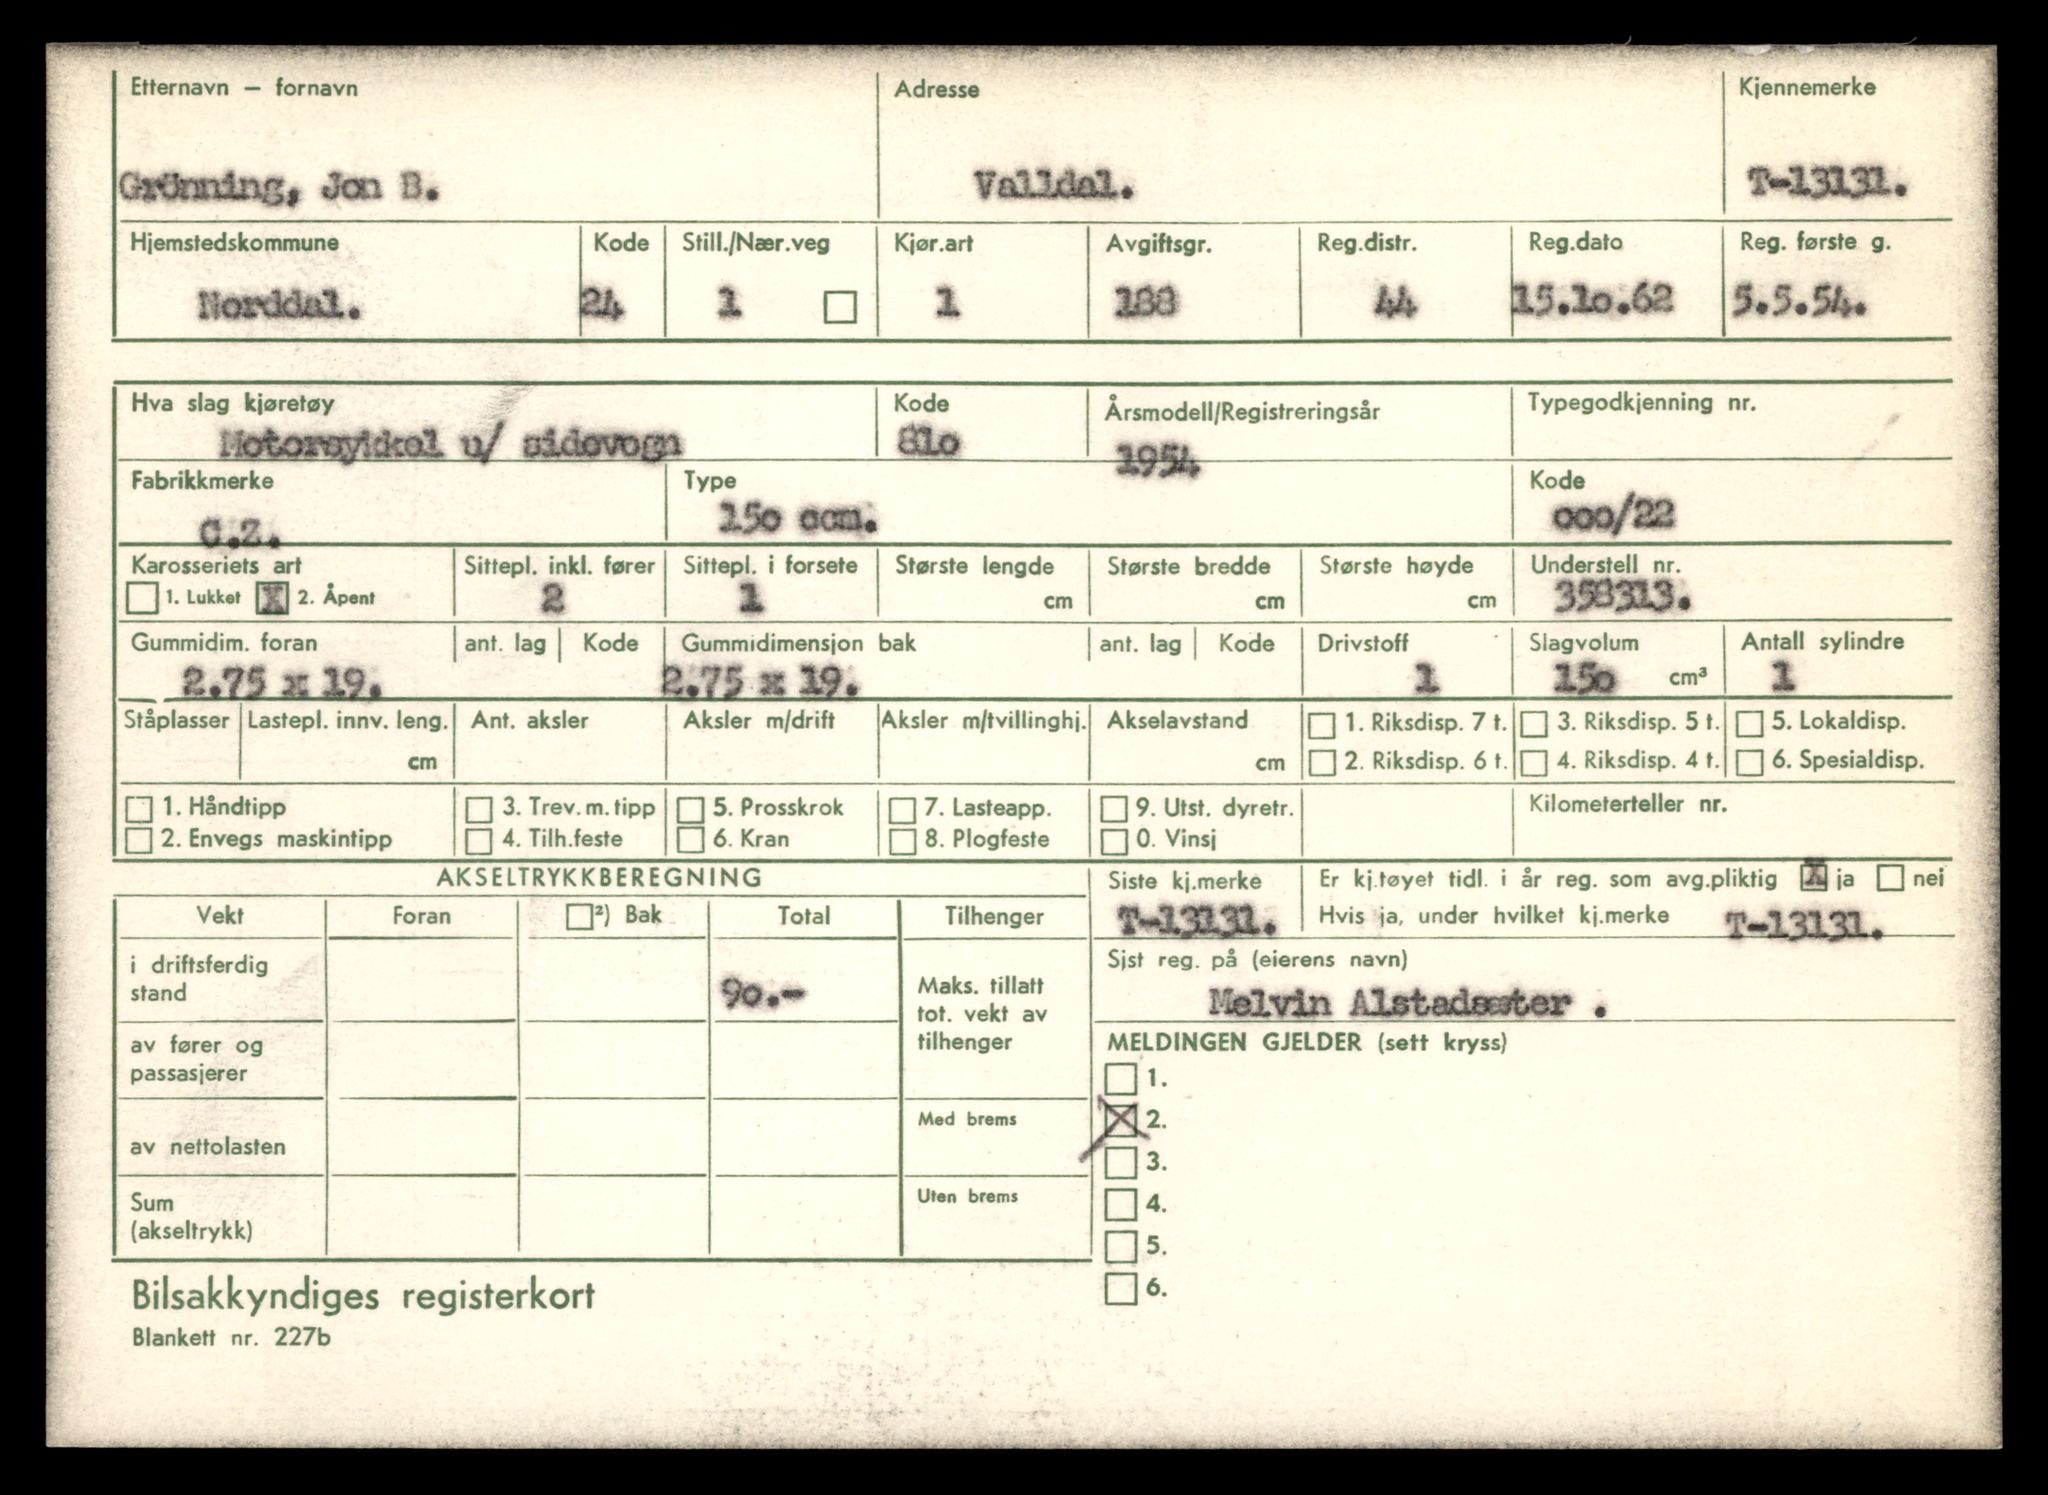 Etternavn – fornavn Adresse Kjennemerke
Grönning, Jon B. Valldal. T-13131.
Hjemstedskommune Kode Still./Nær.veg Kjør.art Avgiftsgr. Reg.distr. Reg.dato Reg. første g.
Norddal. 24 1 1 188 44 15.10.62 5.5.54.
Hva slag kjøretøy Kode Årsmodell/Registreringsår Typegodkjenning nr.
Motorsykkel u/ sidevogn 81o 1954
Fabrikkmerke Type Kode
C.Z. 15o ccm. ooo/22
Karosseriets art Sittepl. inkl. fører Sittepl. i forsete Største lengde Største bredde Største høyde Understell nr.
1. Lukket X 2. Åpent 2 1 cm cm cm 358313.
Gummidim. foran ant. lag Kode Gummidimensjon bak ant. lag Kode Drivstoff Slagvolum Antall sylindre
2.75 x 19. 2.75 x 19. 1 15o cm³ 1
Ståplasser Lastepl. innv. leng. Ant. aksler Aksler m/drift Aksler m/tvillinghj. Akselavstand 1. Riksdisp. 7 t. 3. Riksdisp. 5 t. 5. Lokaldisp.
cm cm 2. Riksdisp. 6 t. 4. Riksdisp. 4 t. 6. Spesialdisp.
1. Håndtipp 3. Trev. m. tipp 5. Prosskrok 7. Lasteapp. 9. Utst. dyretr. Kilometerteller nr.
2. Envegs maskintipp 4. Tilh.feste 6. Kran 8. Plogfeste 0. Vinsj
AKSELTRYKKBEREGNING Siste kj.merke Er kj.tøyet tidl. i år reg. som avg.pliktig X ja nei
Vekt Foran ²) Bak Total Tilhenger T-13131. Hvis ja, under hvilket kj.merke T-13131.
i driftsferdig stand 90.- Maks. tillatt tot. vekt av tilhenger
Sist reg. på (eierens navn)
Melvin Alstadsæter .
av fører og passasjerer
MELDINGEN GJELDER (sett kryss)
1.
X 2.
3.
4.
5.
6.
Med brems
av nettolasten
Uten brems
Sum (akseltrykk)
Bilsakkyndiges registerkort
Blankett nr. 227b